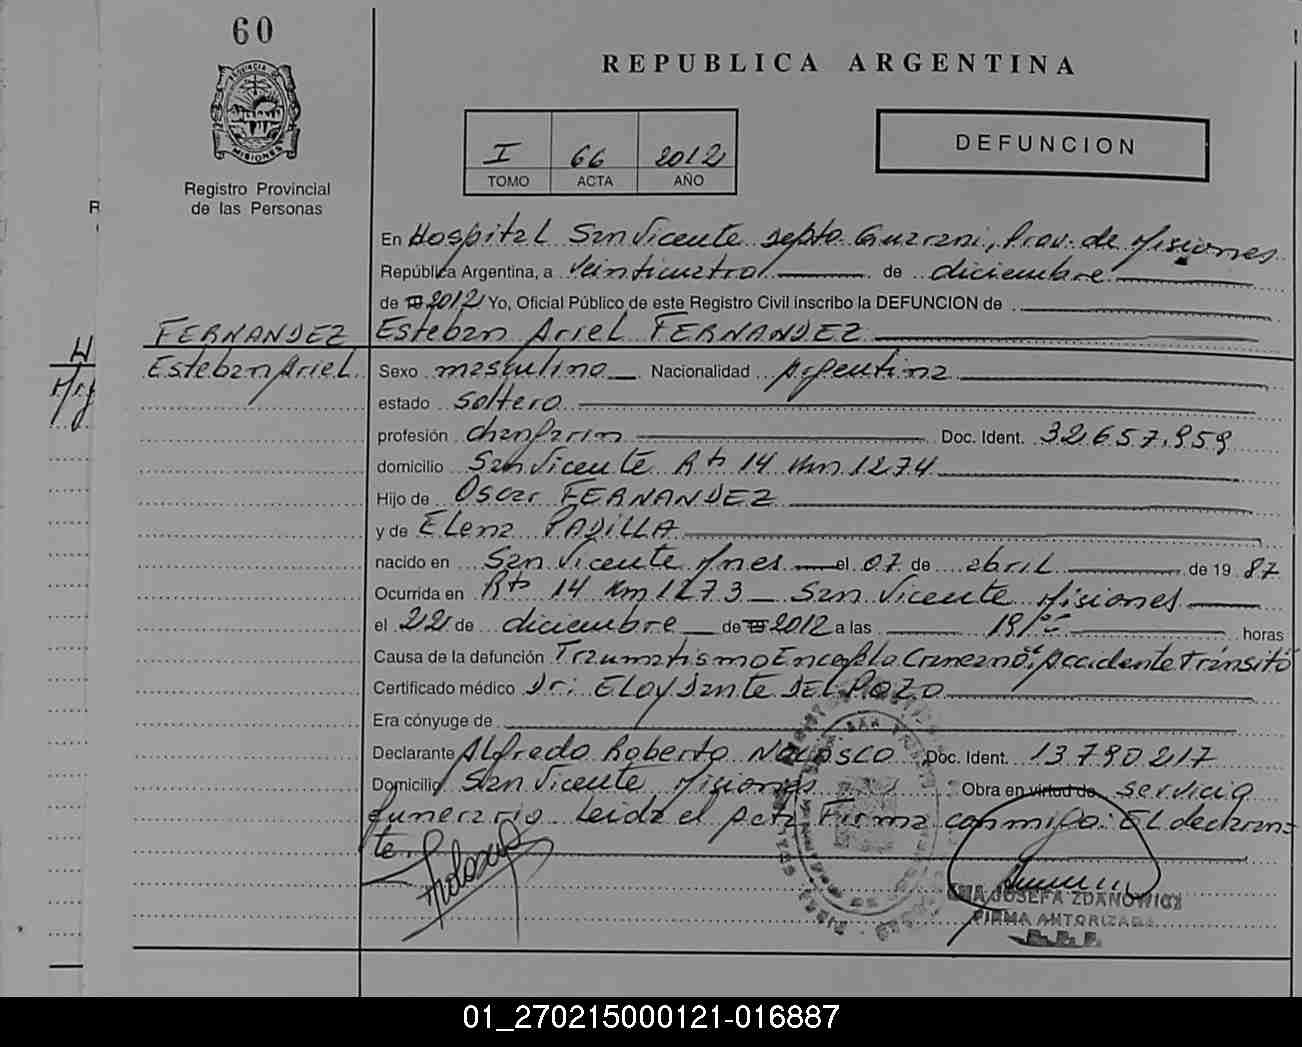 60
REPUBLICA ARGENTINA
PROVINCIA DE
MISIONES
Registro Provincial
de las Personas
I 66 2012
TOMO ACTA AÑO
DEFUNCION
En Hospital San Vicente depto Guarani, Prov. de Misiones
República Argentina, a veinticuatro de diciembre
de 19 2012 Yo, Oficial Público de este Registro Civil inscribo la DEFUNCION de
FERNANDEZ Esteban Ariel FERNANDEZ
Esteban Ariel Sexo masculino Nacionalidad Argentina
estado soltero
profesión chanfarin Doc. Ident. 32.657.959
domicilio San Vicente Rta 14 Km 1274
Hijo de Oscar FERNANDEZ
y de Elena PADILLA
nacido en San Vicente Mnes el 07 de abril de 19 87
Ocurrida en Rta 14 Km 1273 - San Vicente Misiones
el 22 de diciembre de 19 2012 a las 19,00 horas
Causa de la defunción Traumatismo Encefalo Craneano, Accidente Tránsito
Certificado médico Dr: ELOY Dante DEL POZO
Era cónyuge de
Declarante Alfredo Roberto NOLASCO Doc. Ident. 13.790.217
Domicilio San Vicente Misiones Obra en virtud de servicio
funerario. Leida el Acta Firma conmigo. El declaran-
te.
JOSEFA ZDANOWICZ
FIRMA AUTORIZADA
01_270215000121-016887